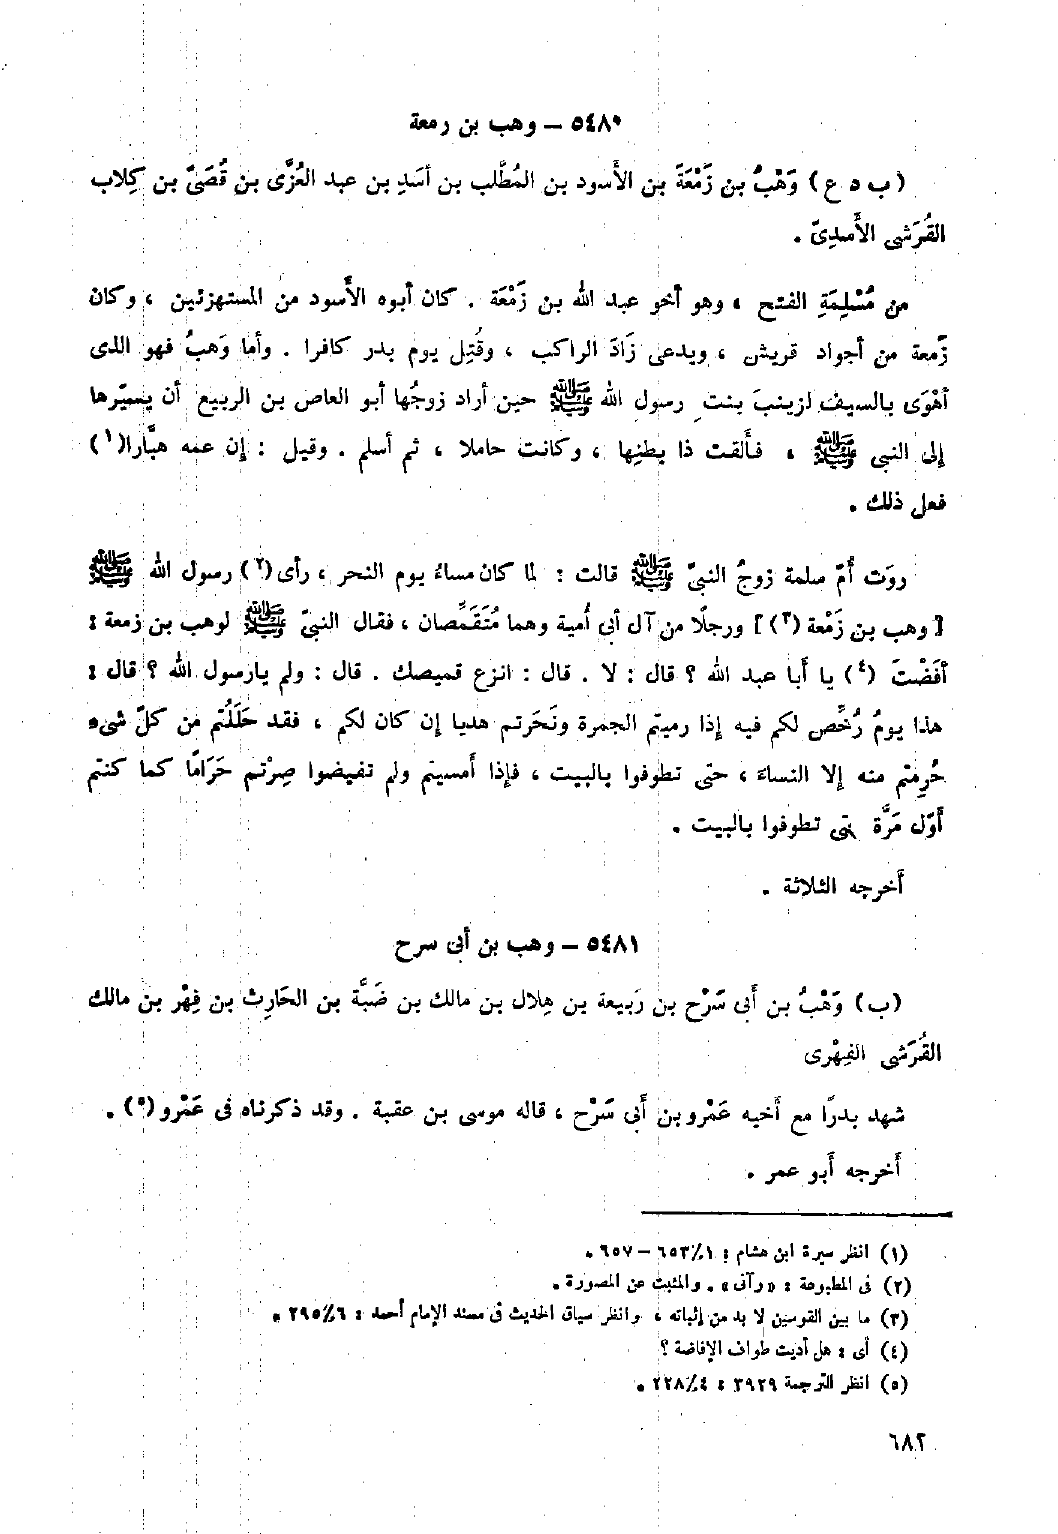 ٥٤٨٠ – وهب بن زمعة
( ب د ع ) وَهْبُ بن زَمْعَةَ بن الأَسود بن المُطَّلب بن أسَدِ بن عبد العُزَّى بن قُصَىّ بن كِلاب
القُرَشى الأَسدِىّ .
من مُسْلِمَةِ الفتح ، وهو أخو عبد الله بن زَمْعَة . كان أبوه الأَسود من المستهزئين ، وكان
زَمعة من أجواد قريش ، ويدعى زَادَ الراكب ، وقُتِل يوم بدر كافرا . وأما وَهبُ فهو الذى
أهْوَى بالسيف لزينبَ بنتِ رسول الله ﷺ حين أراد زوجُها أبو العاص بن الربيع أن يسيّرها
إلى النبى ﷺ ، فأَلقت ذا بطنِها ، وكانت حاملا ، ثم أسلم . وقيل : إن عمه هبَّارا(١)
فعل ذلك .
روَت أُمّ سلمة زوجُ النبىّ ﷺ قالت : لما كان مساءُ يوم النحر ، رأى(٢) رسول الله ﷺ
[ وهب بن زَمْعة (٣) ] ورجلًا من آل أبى أُمية وهما مُتَقَمِّصان ، فقال النبىّ ﷺ لوهب بن زمعة :
أفَضْتَ (٤) يا أبا عبد الله ؟ قال : لا . قال : انزع قميصك . قال : ولم يارسول الله ؟ قال :
هذا يومُ رُخِّص لكم فيه إذا رميتم الجمرة ونَحَرتم هديا إن كان لكم ، فقد حَلَلْتُم من كلّ شىء
حُرِمتم منه إلا النساءَ ، حتى تطوفوا بالبيت ، فإذا أمسيتم ولم تفيضوا صِرْتم حَرَامًا كما كنتم
أوّل مَرَّة حتى تطوفوا بالبيت .
أَخرجه الثلاثة .
٥٤٨١ – وهب بن أبى سرح
(ب) وَهْبُ بن أَبى سَرْح بن رَبيعة بن هِلال بن مالك بن ضَبَّة بن الحَارِث بن فِهْر بن مالك
القُرَشى الفِهْرى
شهد بدرًا مع أَخيه عَمْرو بن أَبى سَرْح ، قاله موسى بن عقبة . وقد ذكرناه فى عَمْرو(٥) .
أَخرجه أَبو عمر .
(١) انظر سيرة ابن هشام : ١/٦٥٣ – ٦٥٧ .
(٢) فى المطبوعة : « رآنى » . والمثبت عن المصورة .
(٣) ما بين القوسين لا بد من إثباته ، وانظر سياق الحديث فى مسند الإمام أحمد : ٦/٢٩٥ .
(٤) أى : هل أديت طواف الإفاضة ؟
(٥) انظر الترجمة ٣٩٢٩ : ٤/٢٢٨ .
٦٨٢